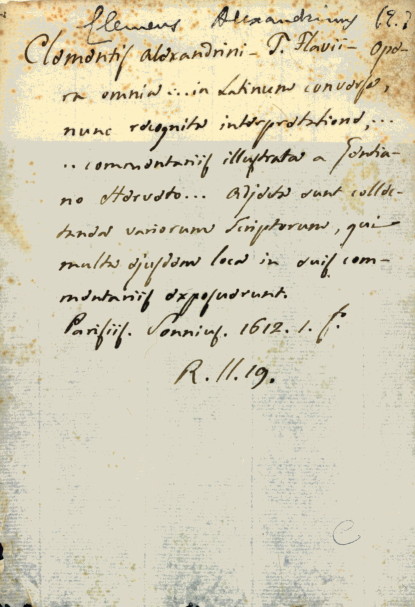 Clemens Alexandrinus
Clementis Alexandrini - T. Flavii - Ope-
ra omnia ... in Latinum conversa,
nunc recognita interpretatione, ...
.. commentariis illustrata a Gentia-
no Herveto ... Adjecta sunt collec-
tanea variorum Scriptorum, qui
multa ejusdem loca in suis com-
mentariis exposuerunt.
Parisiis. Sonnius. 1612. 1. f.
R. 11. 19.
C